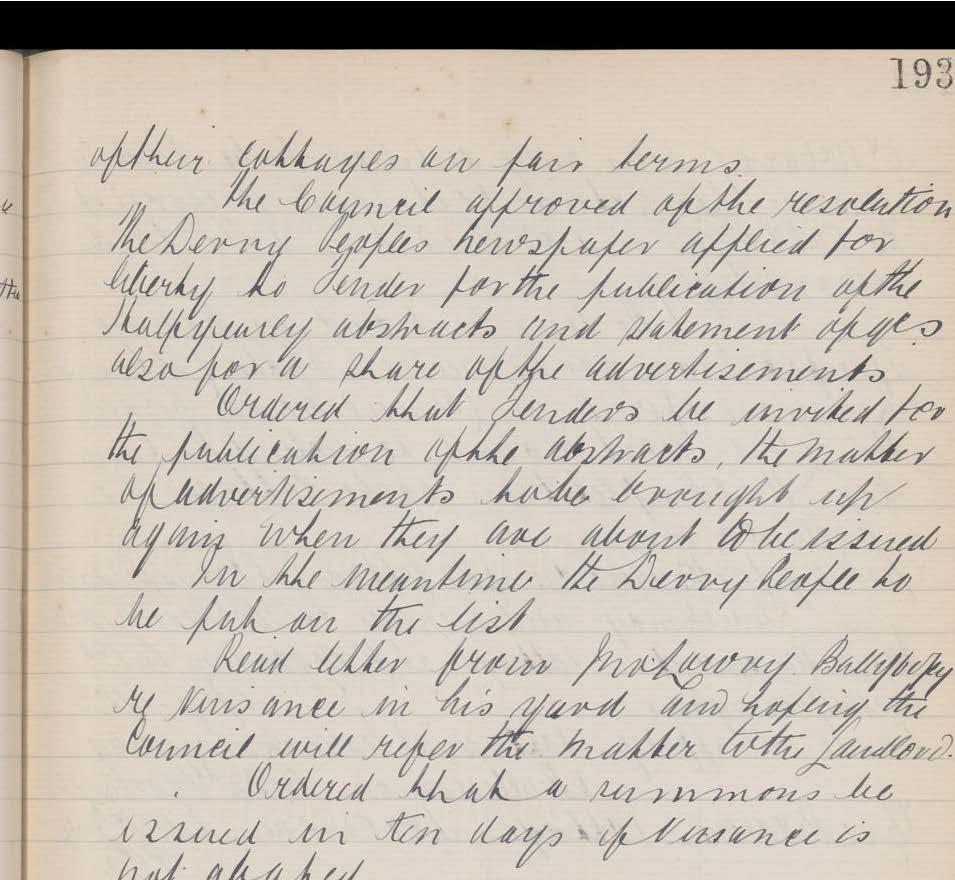 193
of their cottages on fair terms.
The Council approved of the resolution
The Derry Peoples Newspaper applied for
liberty to Tender for the publication of the
Halfyearly abstracts and statement of
also for a share of the advertisements
Ordered that Tenders be invited for
the publication of the abstracts, the matter
of advertisements to be brought up
again when they are about to be issued
In the meantime the Derry People to
be put on the list
Read letter from
re Nuisance in his yard and hoping the
Council will refer the matter to the Landlord.
Ordered that a summons be
issued in ten days if Nuisance is
not abated